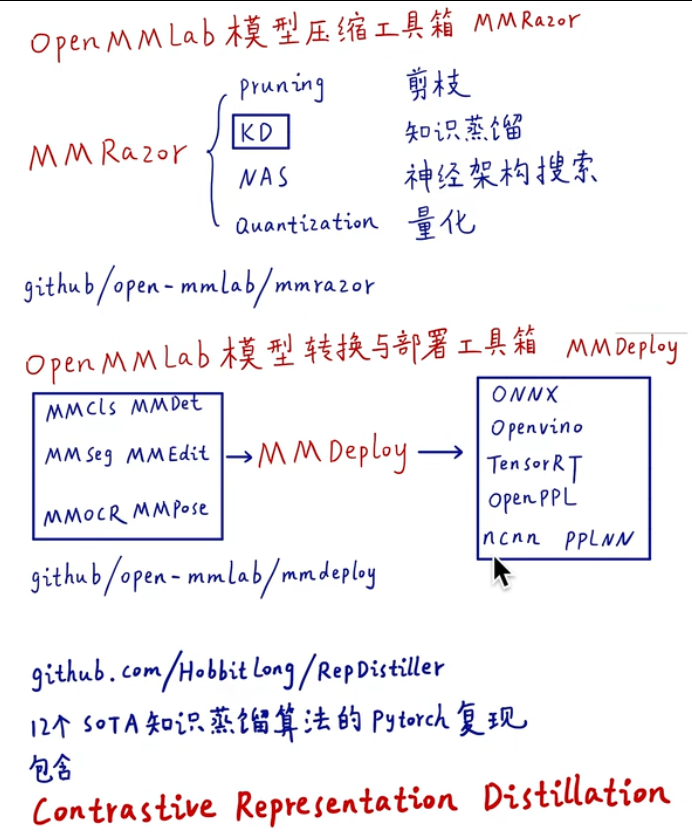 OpenMMLab 模型压缩工具箱 MMRazor
Pruning 剪枝
KD 知识蒸馏
MMRazor
NAS 神经架构搜索
Quantization 量化
github/open-mmlab/mmrazor
OpenMMLab 模型转换与部署工具箱 MMDeploy
MMCls MMDet
MMSeg MMEdit
MMOCR MMPose
MMDeploy
ONNX
Openvino
TensorRT
OpenPPL
ncnn PPLNN
github/open-mmlab/mmdeploy
github.com/HobbitLong/RepDistiller
12个 SOTA知识蒸馏算法的 Pytorch 复现
包含
Contrastive Representation Distillation